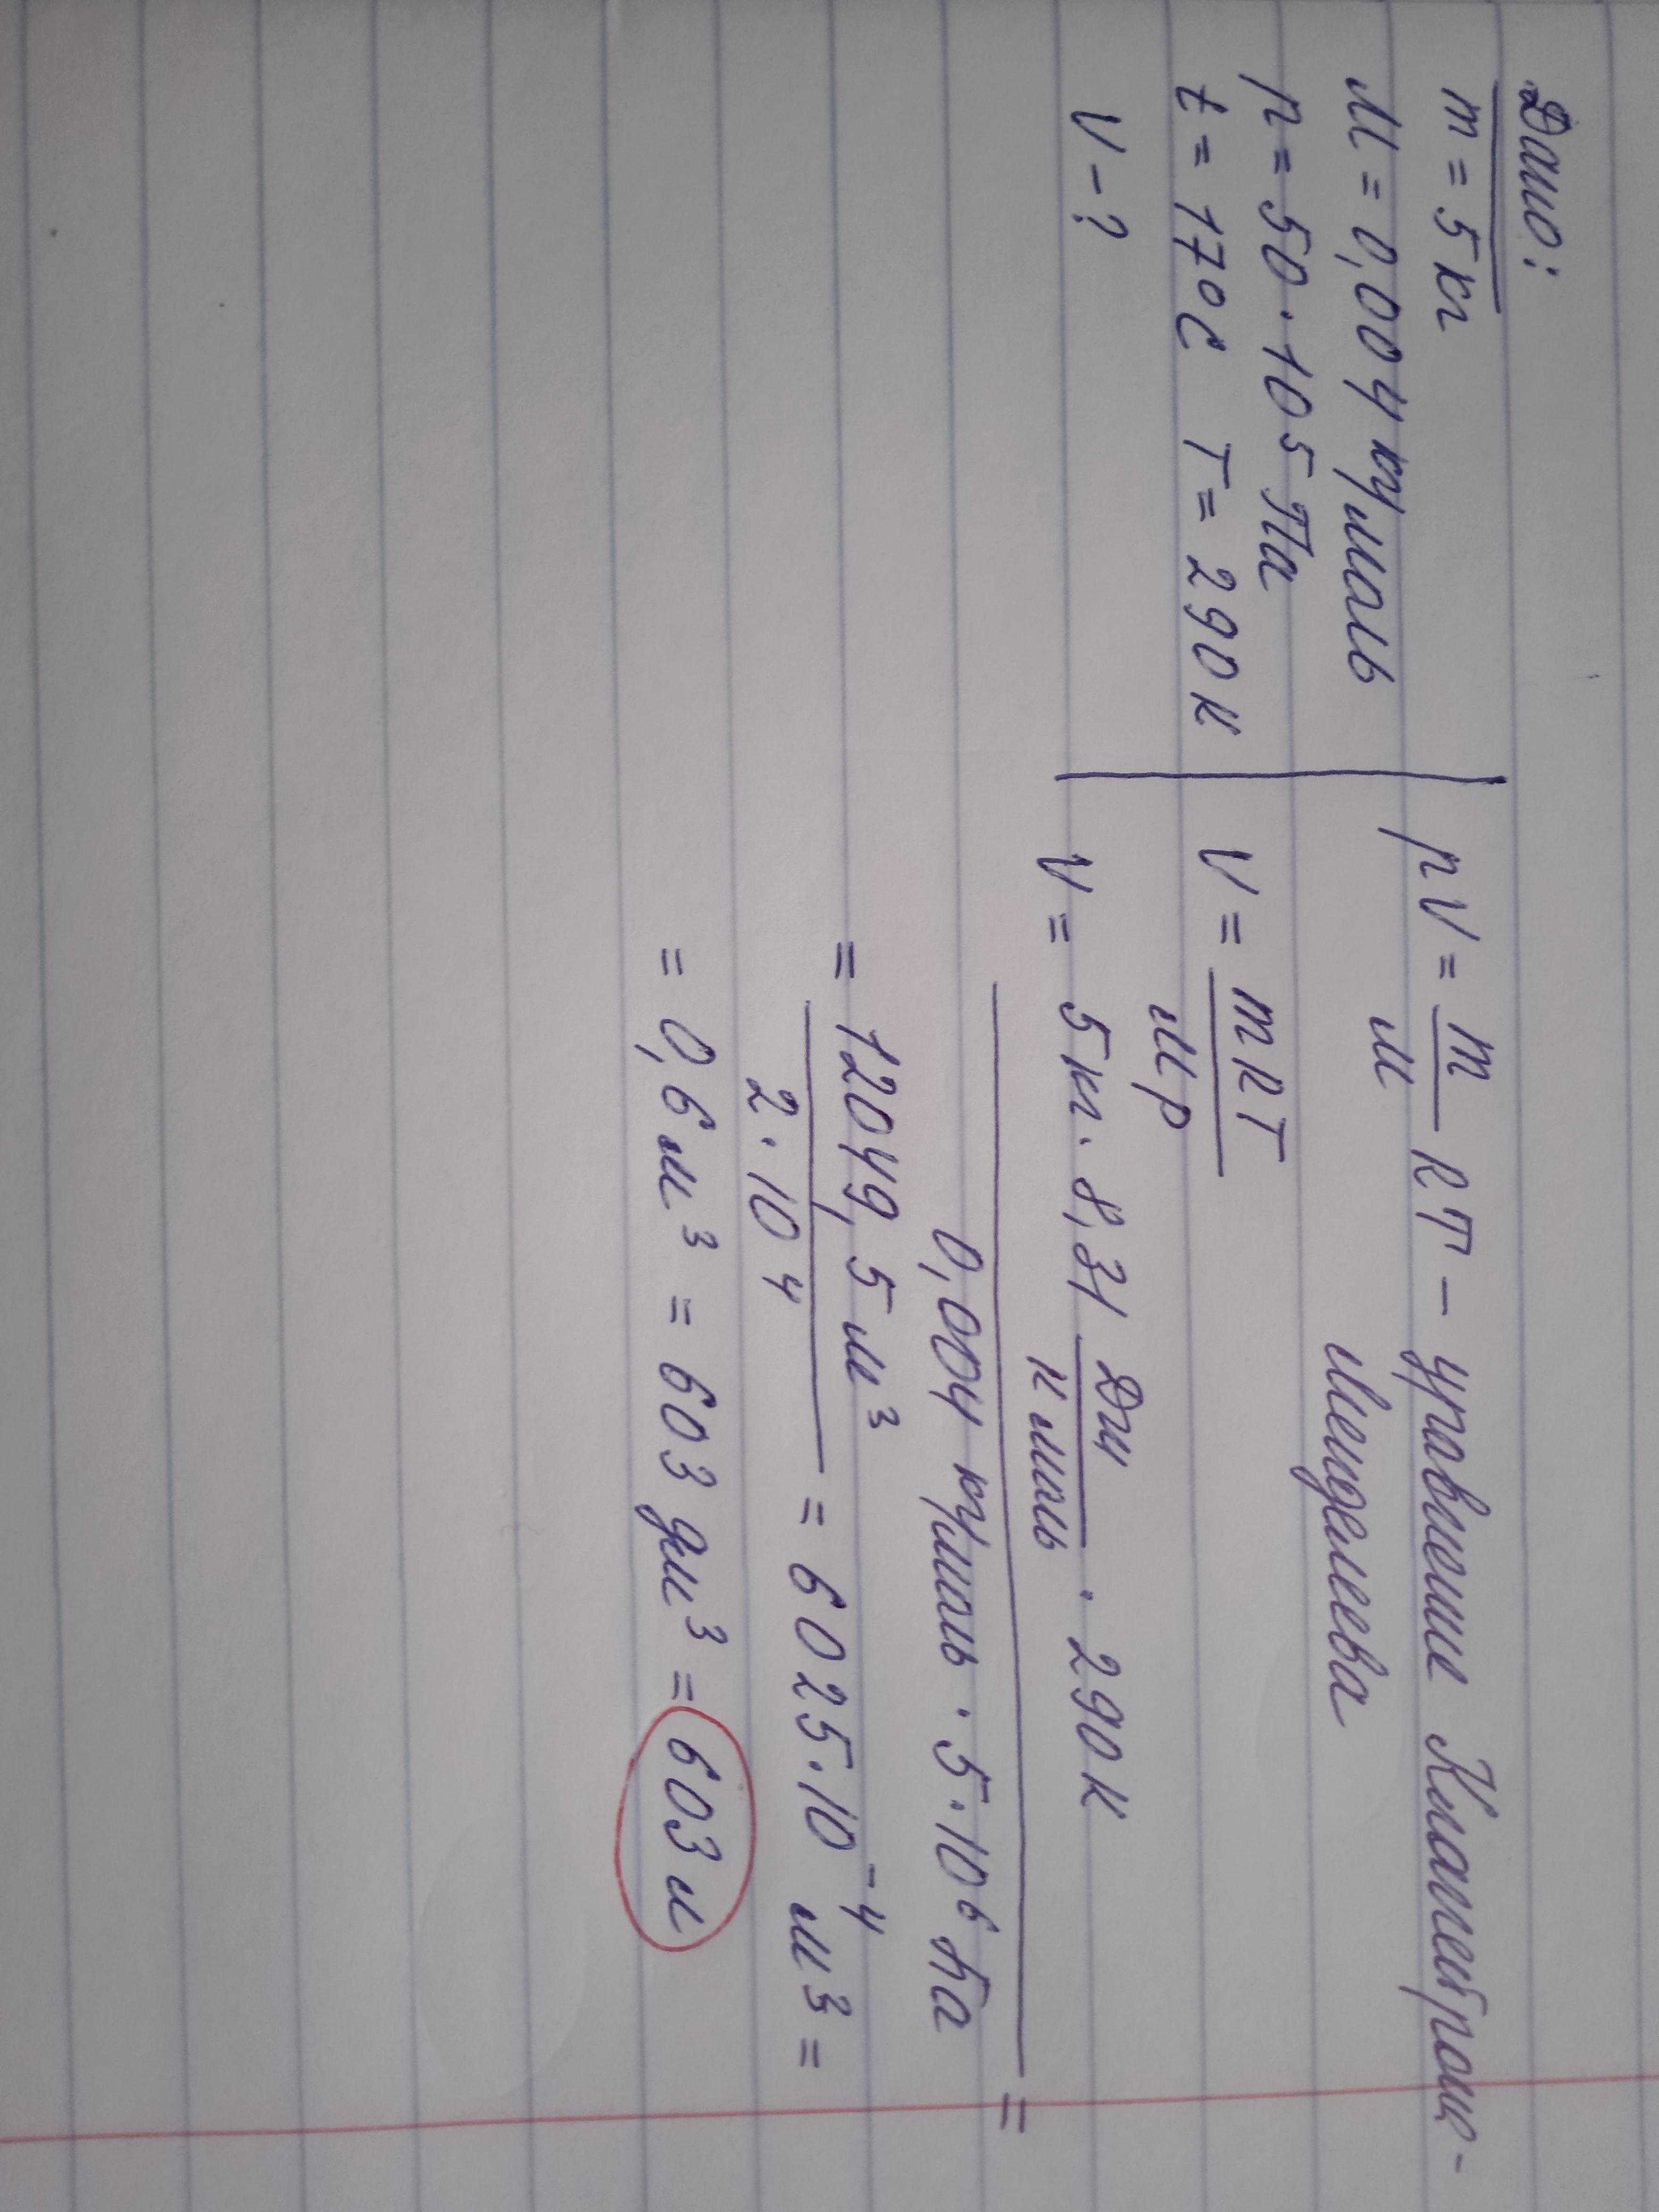 Дано:
m = 5 кг
M = 0,004 кг/моль
p = 50 · 10⁵ Па
t = 17°C T = 290 К
V - ?
pV = m/M RT - уравнение Клапейрона-
Менделеева
V = mRT/Mp
V = 5 кг · 8,31 Дж/К моль · 290 К =
0,004 кг/моль · 5 · 10⁶ Па
= 12049,5 м³/2 · 10⁴ = 6025 · 10⁻⁴ м³ =
= 0,6 м³ = 603 дм³ = 603 л